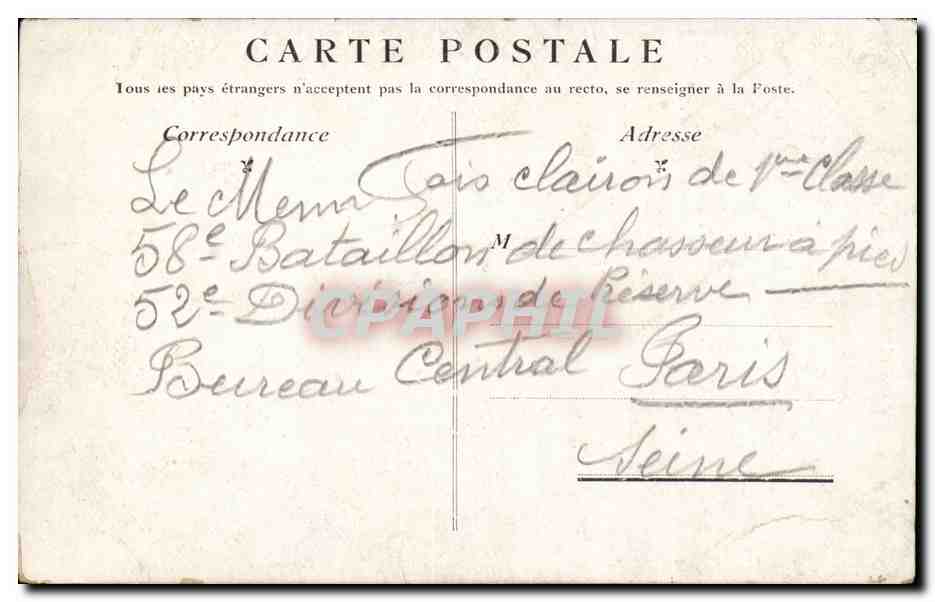 CARTE POSTALE
Tous les pays étrangers n'acceptent pas la correspondance au recto, se renseigner à la Poste.
Correspondance
Adresse
Le clairon de 1ère Classe
M
58e Bataillon de chasseur à pied
52e Division de Réserve
CPAPHIL
Bureau Central Paris
Seine